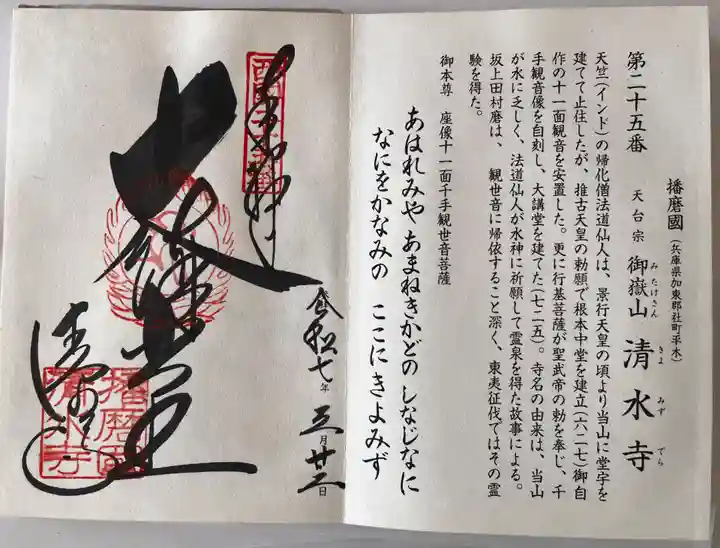 播磨國(兵庫県加東郡社町平木)
第二十五番 天台宗 御嶽山 清水寺
みたけさん きよ みず でら
天竺(インド)の帰化僧法道仙人は、景行天皇の頃より当山に堂宇を
建てて止住したが、推古天皇の勅願で根本中堂を建立(六二七)御自
作の十一面観音を安置した。更に行基菩薩が聖武帝の勅を奉じ、千
手観音像を自刻し、大講堂を建てた(七二五)。寺名の由来は、当山
が水に乏しく、法道仙人が水神に祈願して霊泉を得た故事による。
坂上田村磨は、観世音に帰依すること深く、東夷征伐ではその霊
験を得た。
御本尊 座像十一面千手観世音菩薩
あはれみや あまねきかどの しなじなに
なにをかなみの ここにきよみず
令和七年 三月廿二日
大講堂
清水寺
播磨國
清水寺